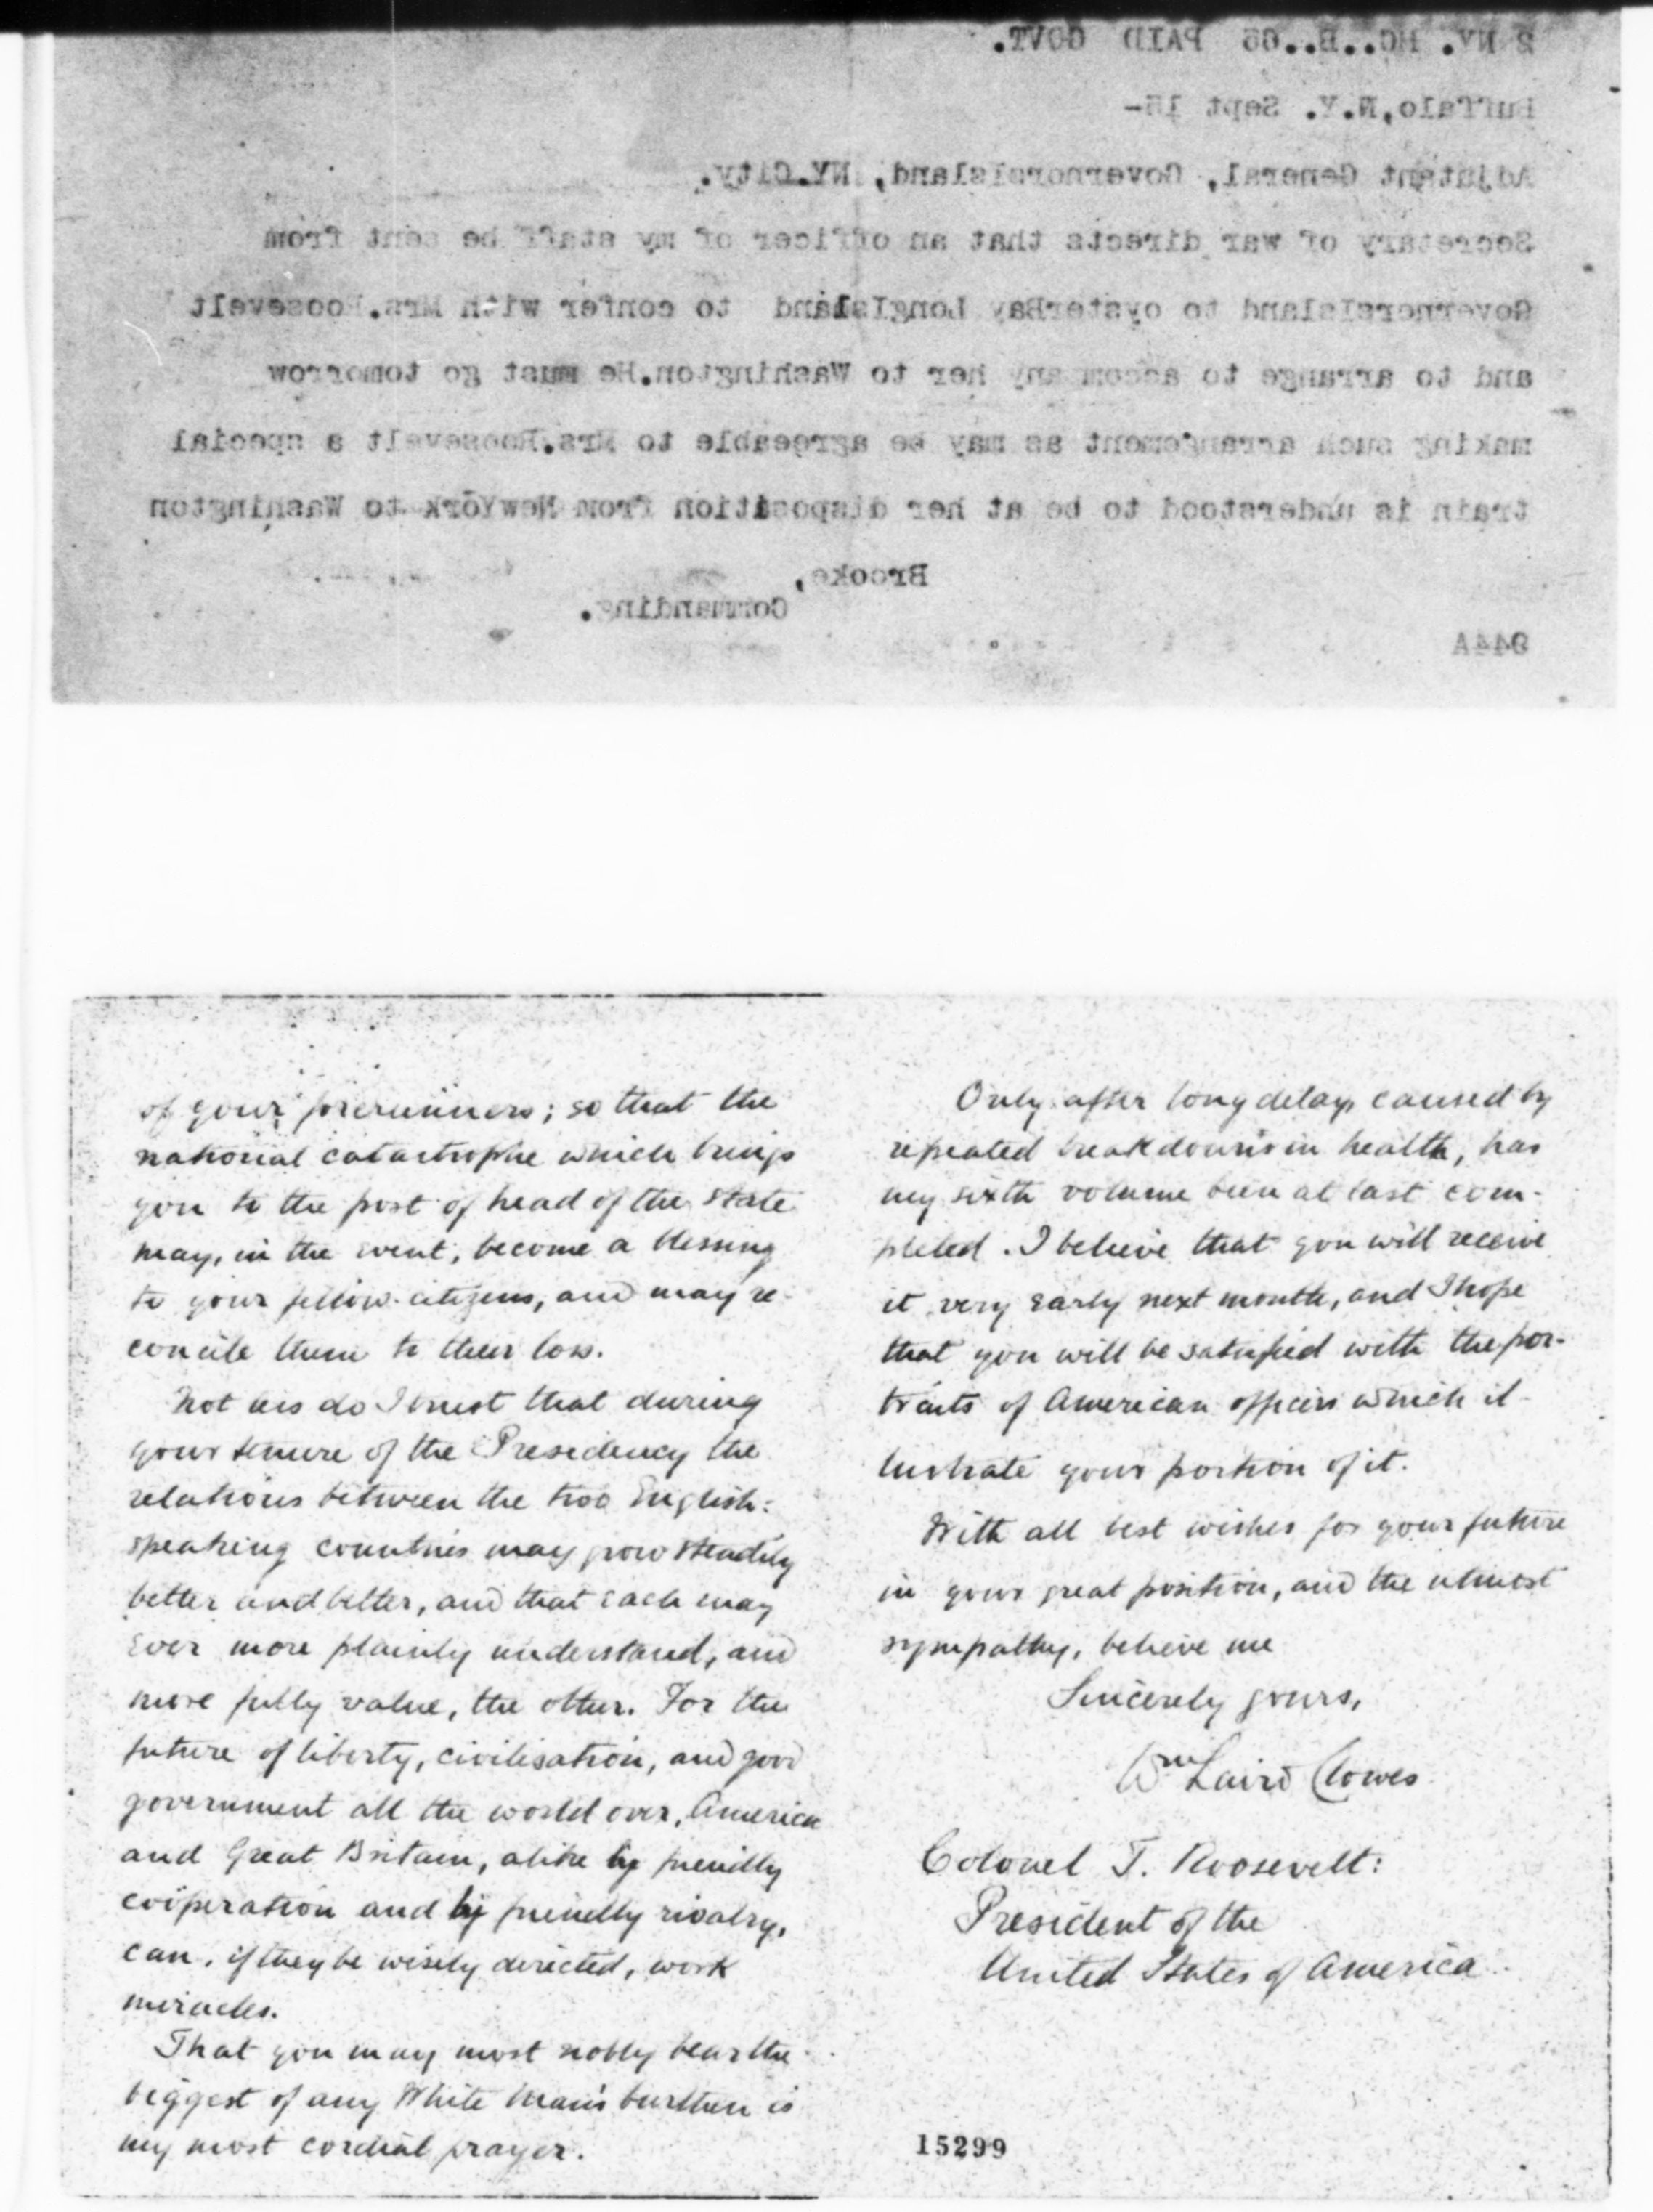 2 NY. HG..B..65 PAID GOVT.
Buffalo,N.Y. Sept 15-
Adjutant General, GovernorsIsland, NY.City.
Secretary of war directs that an officer of my staff be sent from
GovernorsIsland to oysterBay LongIsland to confer with Mrs.Roosevelt
and to arrange to accompany her to Washington.He must go tomorrow
making such arrangement as may be agreeable to Mrs.Roosevelt a special
train is understood to be at her disposition from NewYork to Washington
Brooke,
Commanding.
944A
of your forerunners; so that the
national catastrophe which brings
you to the post of head of the State
may, in the event, become a blessing
to your fellow-citizens, and may re-
concile them to their loss.
Not less do I trust that during
your tenure of the Presidency the
relations between the two English-
speaking countries may grow steadily
better and better, and that each may
ever more plainly understand, and
more fully value, the other. For the
future of liberty, civilisation, and good
government all the world over, America
and Great Britain, alike by friendly
coöperation and by friendly rivalry,
can, if they be wisely directed, work
miracles.
That you may most nobly bear the
biggest of any White Man's burthen is
my most cordial prayer.
Only after long delays caused by
repeated breakdowns in health, has
my sixth volume been at last com-
pleted. I believe that you will receive
it very early next month, and I hope
that you will be satisfied with the por-
traits of American officers which il-
lustrate your portion of it.
With all best wishes for your future
in your great position, and the utmost
sympathy, believe me
Sincerely yours,
Wm Laird Clowes
Colonel T. Roosevelt:
President of the
United States of America
15299